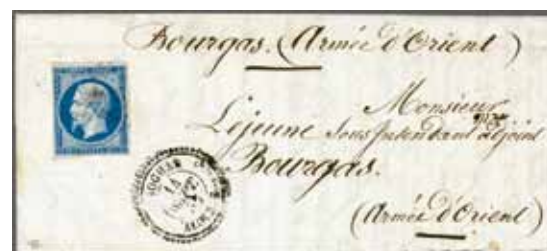 Bourgas. (Armée d'Orient)
Monsieur
Lejeune Sous Intendant adjoint
Bourgas.
(Armée d'Orient)